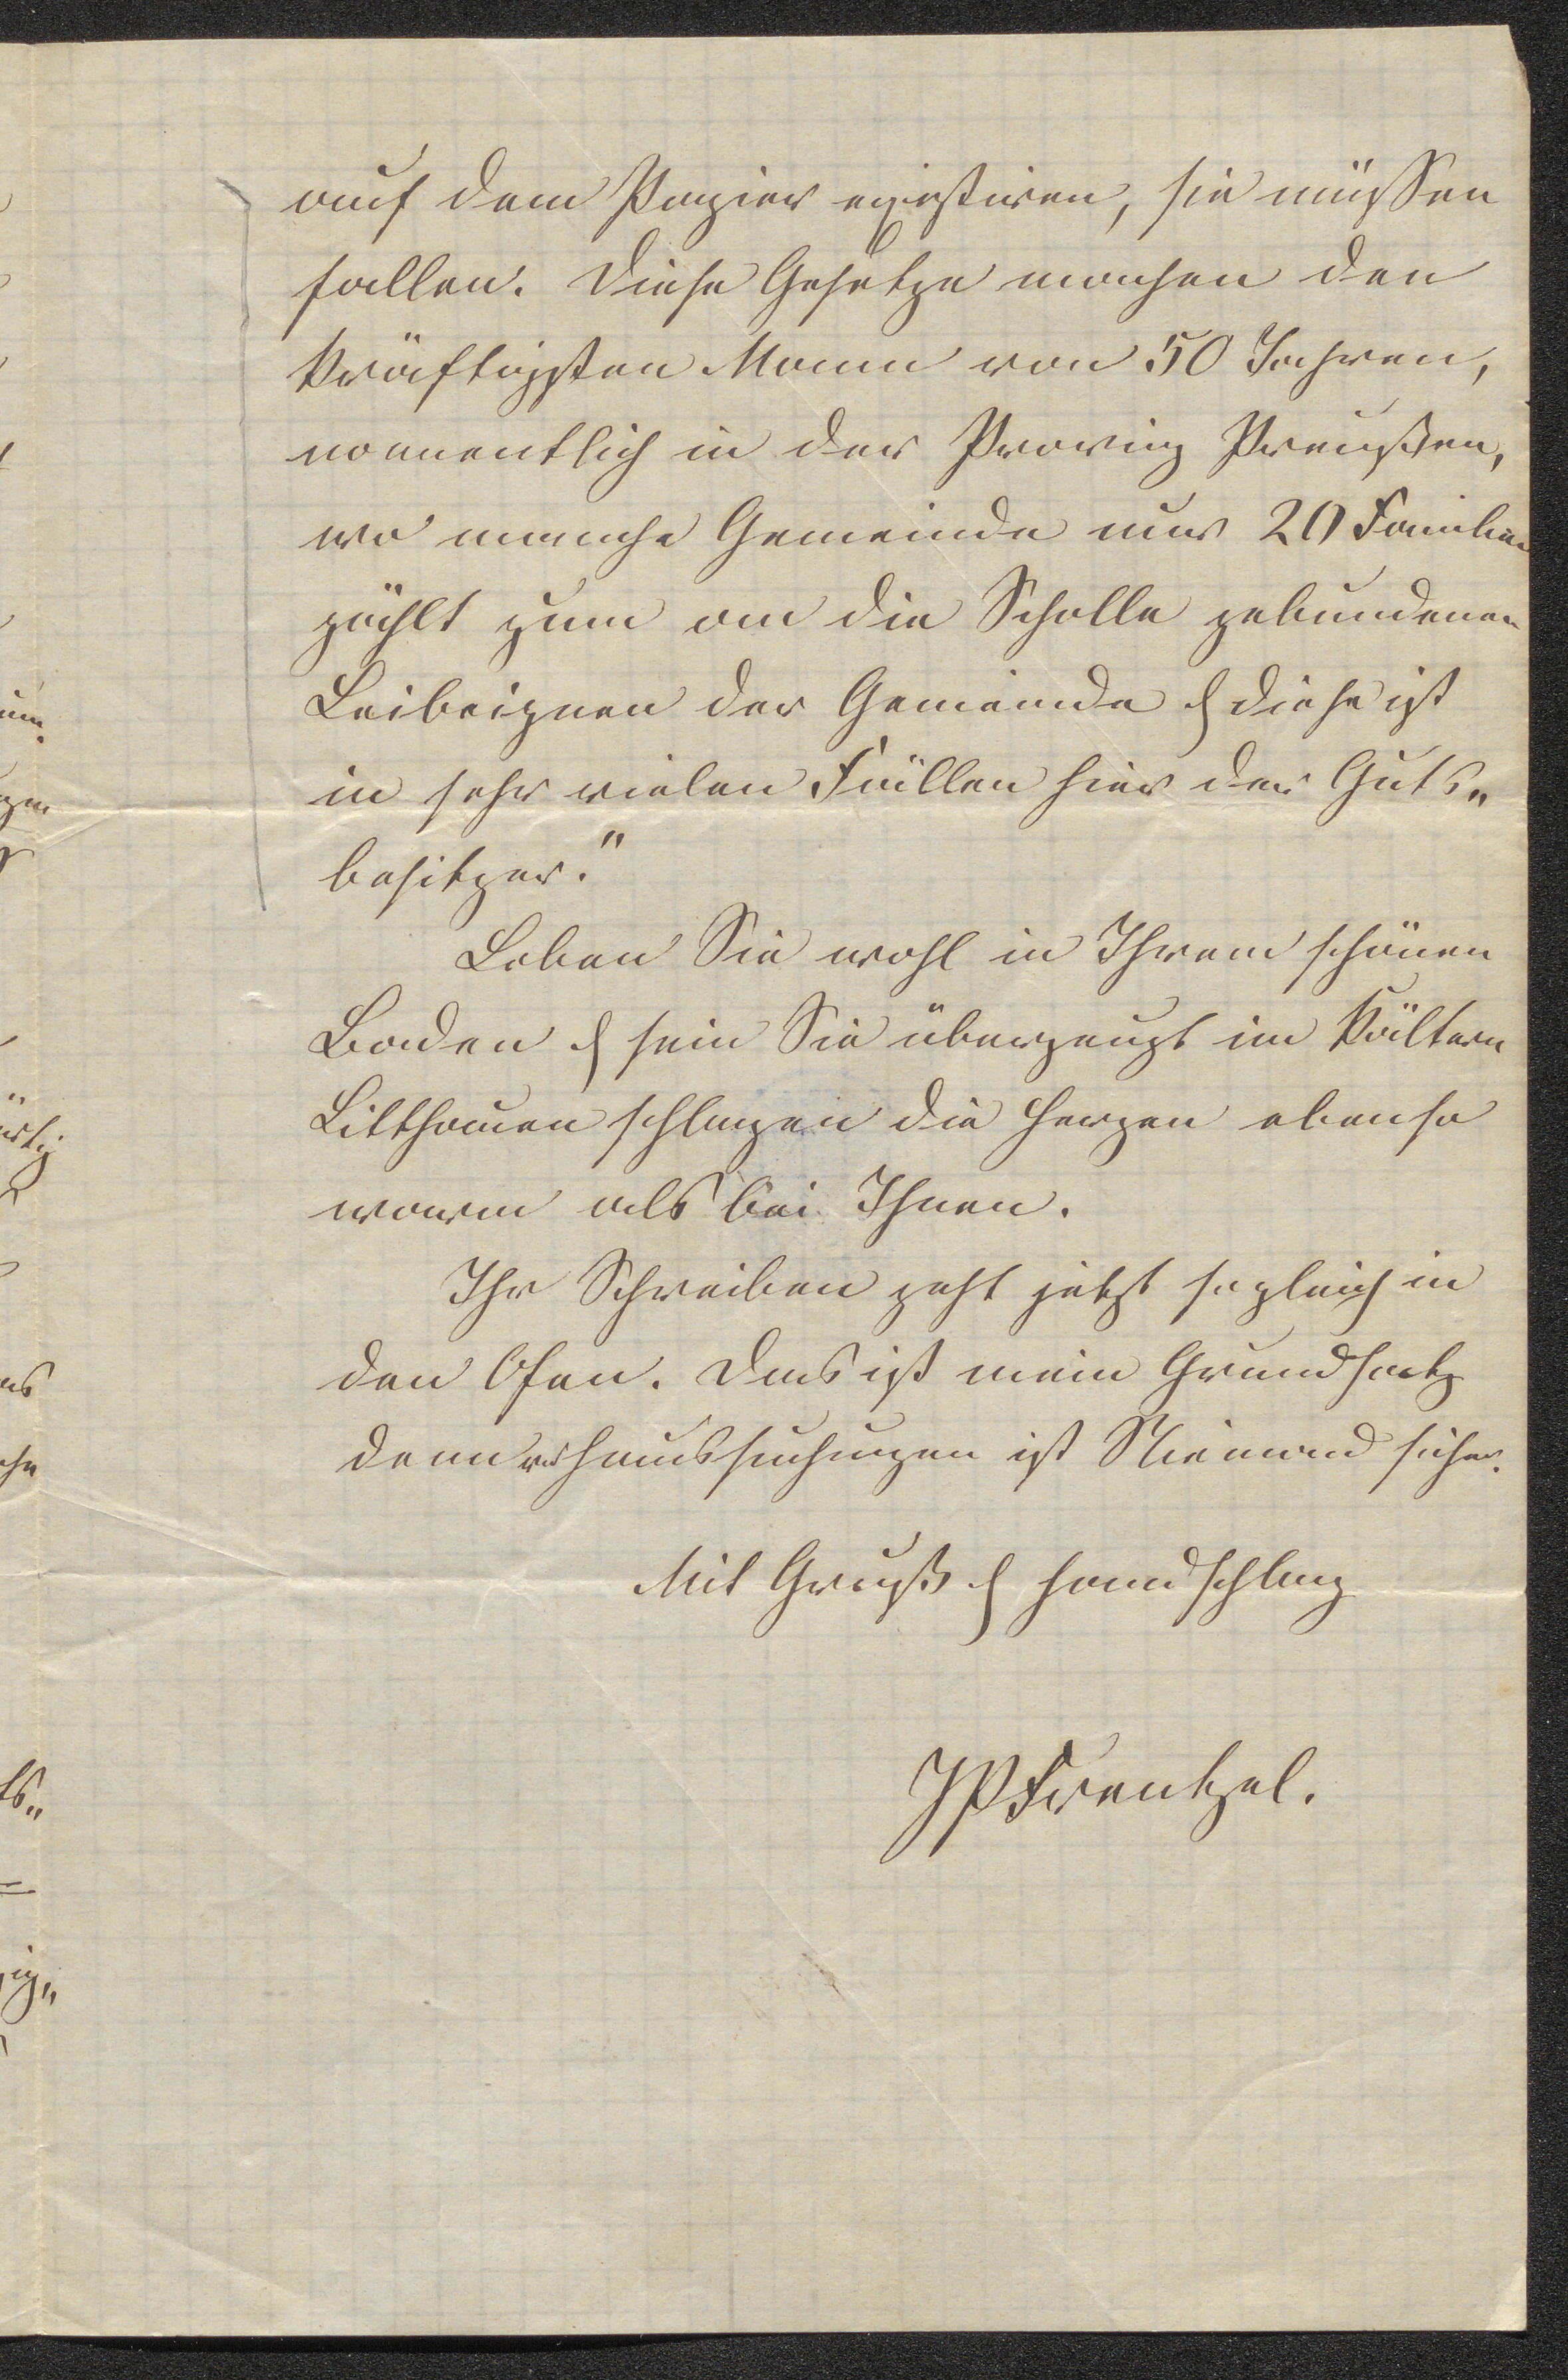 auf dem Papier existiren, sie müssen
fallen. Diese Gesetze machen den
kräftigsten Mann von 50 Jahren,
namentlich in der Provinz Preußen,
wo manche Gemeinde nur 20 Familien
zählt zum an die Scholle gebundenen
Leibeignen der Gemeinde & diese ist
in sehr vielen Fällen hier der Guts„
besitzer."
Leben Sie wohl in Ihrem schönen
Baden & sein Sie überzeugt im kältern
Litthauen schlagen die Herzen ebenso
warm als bei Ihnen.
Ihr Schreiben geht jetzt sogleich in
den Ofen. Das ist mein Grundsatz
denn vor Haussuchungen ist Niemand sicher.
Mit Gruß & Handschlag
JPFrentzel.